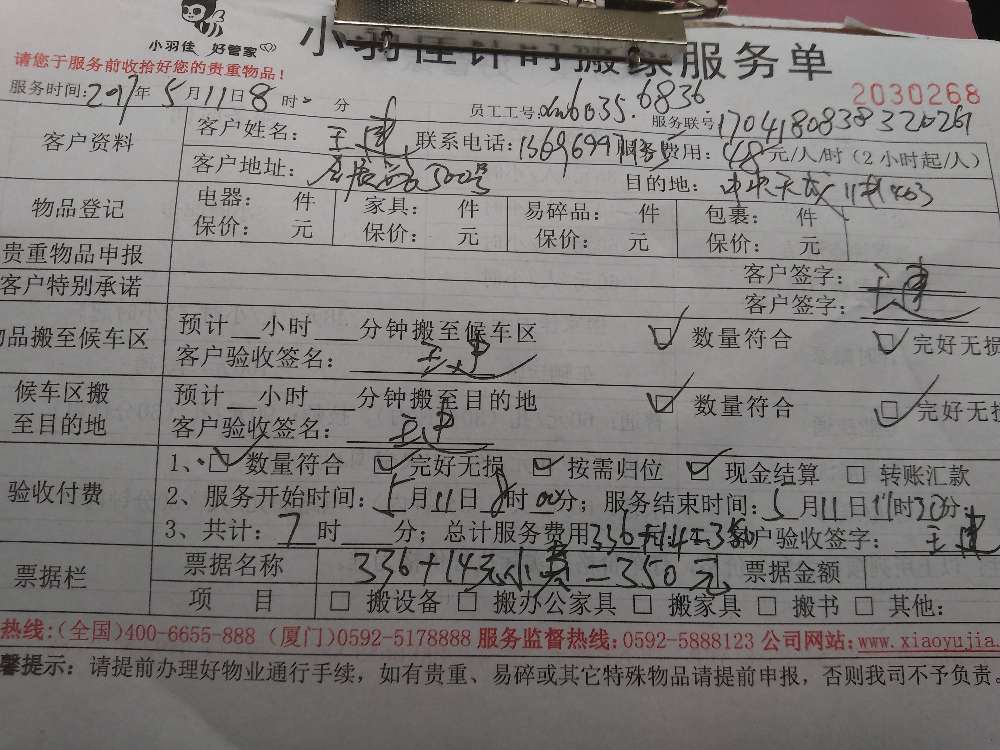 小羽佳 好管家
小羽佳计时搬家服务单
请您于服务前收拾好您的贵重物品！
2030268
服务时间：2017年5月11日8时 分 员工工号 6035. 6836 服务联号
客户资料
客户姓名：王建 联系电话： 服务费用：48元/人/时（2小时起/人）
客户地址： 300号 目的地： 463
物品登记
电器： 件 家具： 件 易碎品： 件 包裹： 件
保价： 元 保价： 元 保价： 元 保价： 元
贵重物品申报 客户签字：王建
客户特别承诺 客户签字：王建
物品搬至候车区
预计__小时___分钟搬至候车区 ☑ 数量符合 ☑ 完好无损
客户验收签名：王建
候车区搬至目的地
预计__小时___分钟搬至目的地 ☑ 数量符合 ☑ 完好无损
客户验收签名：王建
验收付费
1、☑ 数量符合 ☑ 完好无损 ☑ 按需归位 ☑ 现金结算 □ 转账汇款
2、服务开始时间：5月11日8时00分；服务结束时间：5月11日11时30分；
3、共计：7时 分；总计服务费用336+14=350 客户验收签字：王建
票据栏
票据名称 336+14元小费=350元 票据金额
项 目 □ 搬设备 □ 搬办公家具 □ 搬家具 □ 搬书 □ 其他：
热线：（全国）400-6655-888（厦门）0592-5178888 服务监督热线：0592-5888123 公司网站：www.xiaoyujia
馨提示：请提前办理好物业通行手续，如有贵重、易碎或其它特殊物品请提前申报，否则我司不予负责。